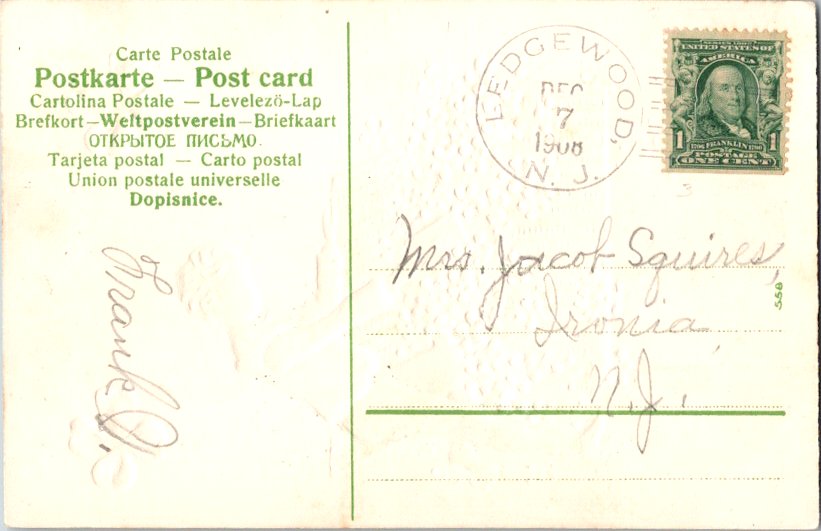 Carte Postale
Postkarte — Post card
Cartolina Postale — Levelezö-Lap
Brefkort—Weltpostverein—Briefkaart
ОТКРЫТОЕ ПИСЬМО.
Tarjeta postal — Carto postal
Union postale universelle
Dopisnice.
Frank D.
LEDGEWOOD,
DEC
7
1908
N. J.
SERIES 1902
UNITED STATES OF
AMERICA
1 1
1706 FRANKLIN 1790
POSTAGE
ONE CENT
3
Mrs. Jacob Squires,
Ironia
N.J.
558